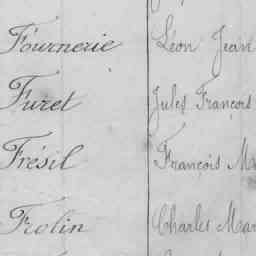 Fournerie Léon Jean
Furet Jules François
Frésil François Ma
Frolin Charles Mar